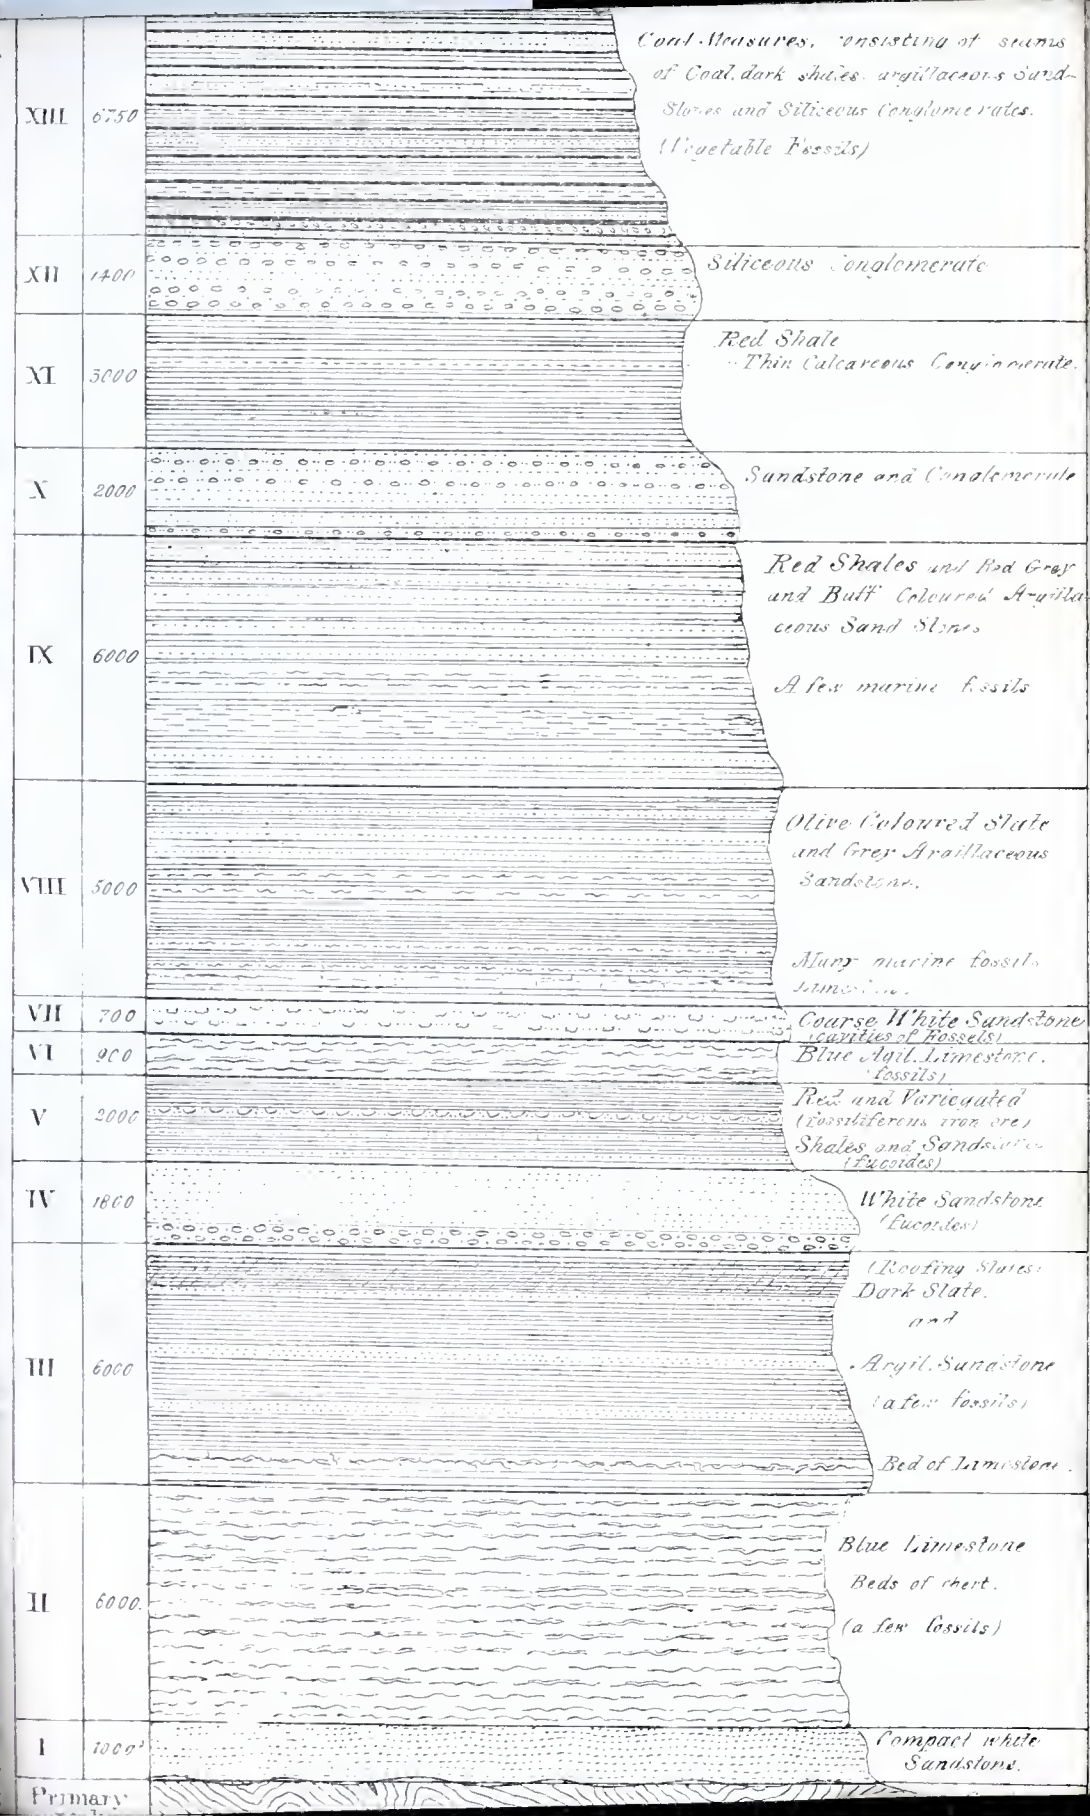 XIII 6750 Coal Measures, consisting of seams
of Coal, dark shales, argillaceous Sand-
Stones and Siliceous Conglomerates.
(Vegetable Fossils)
XII 1400 Siliceous Conglomerate
XI 3000 Red Shale
Thin Calcareous Conglomerate.
X 2000 Sandstone and Conglomerate
IX 6000 Red Shales and Red Grey
and Buff Coloured Argilla
ceous Sand Stones
A few marine fossils
VIII 5000 Olive Coloured Slate
and Grey Argillaceous
Sandstone.
Many marine fossils
Limestone.
VII 700 Coarse White Sandstone
(cavities of Fossels)
VI 900 Blue Agil. Limestone.
fossils)
V 2000 Red and Variegated
(fossiliferous iron ore)
Shales and Sandstone
(fucoides)
IV 1800 White Sandstone
(fucoides)
III 6000 (Roofing Slates)
Dark Slate.
and
Argil. Sandstone
(a few fossils)
Bed of Limestone.
II 6000. Blue Limestone
Beds of chert.
(a few fossils)
I 1000' Compact white
Sandstone.
Primary